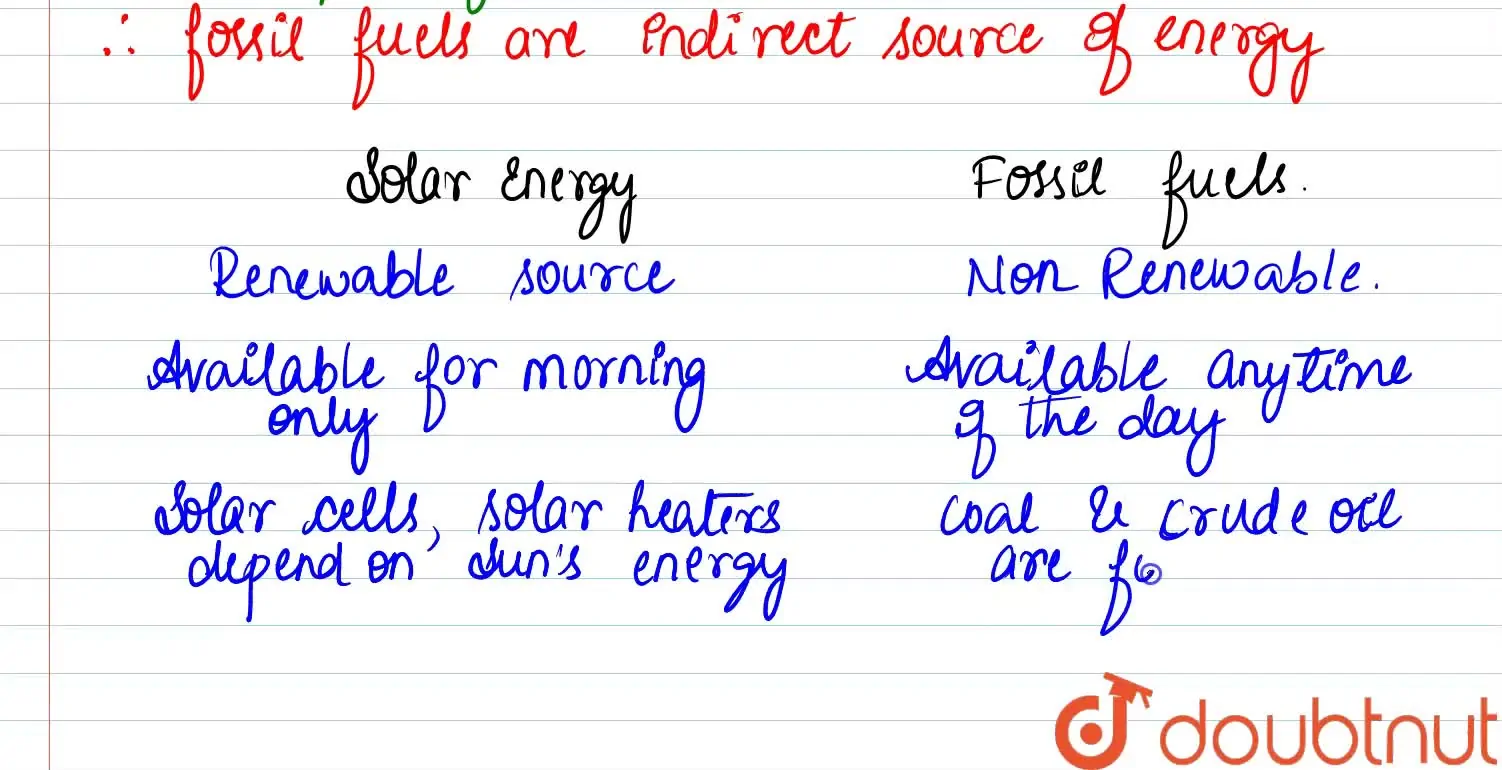 ∴ fossil fuels are indirect source of energy
Solar Energy Fossil fuels.
Renewable source Non Renewable.
Available for morning only Available anytime of the day
Solar cells, solar heaters depend on Sun's energy Coal & crude oil are fo
doubtnut